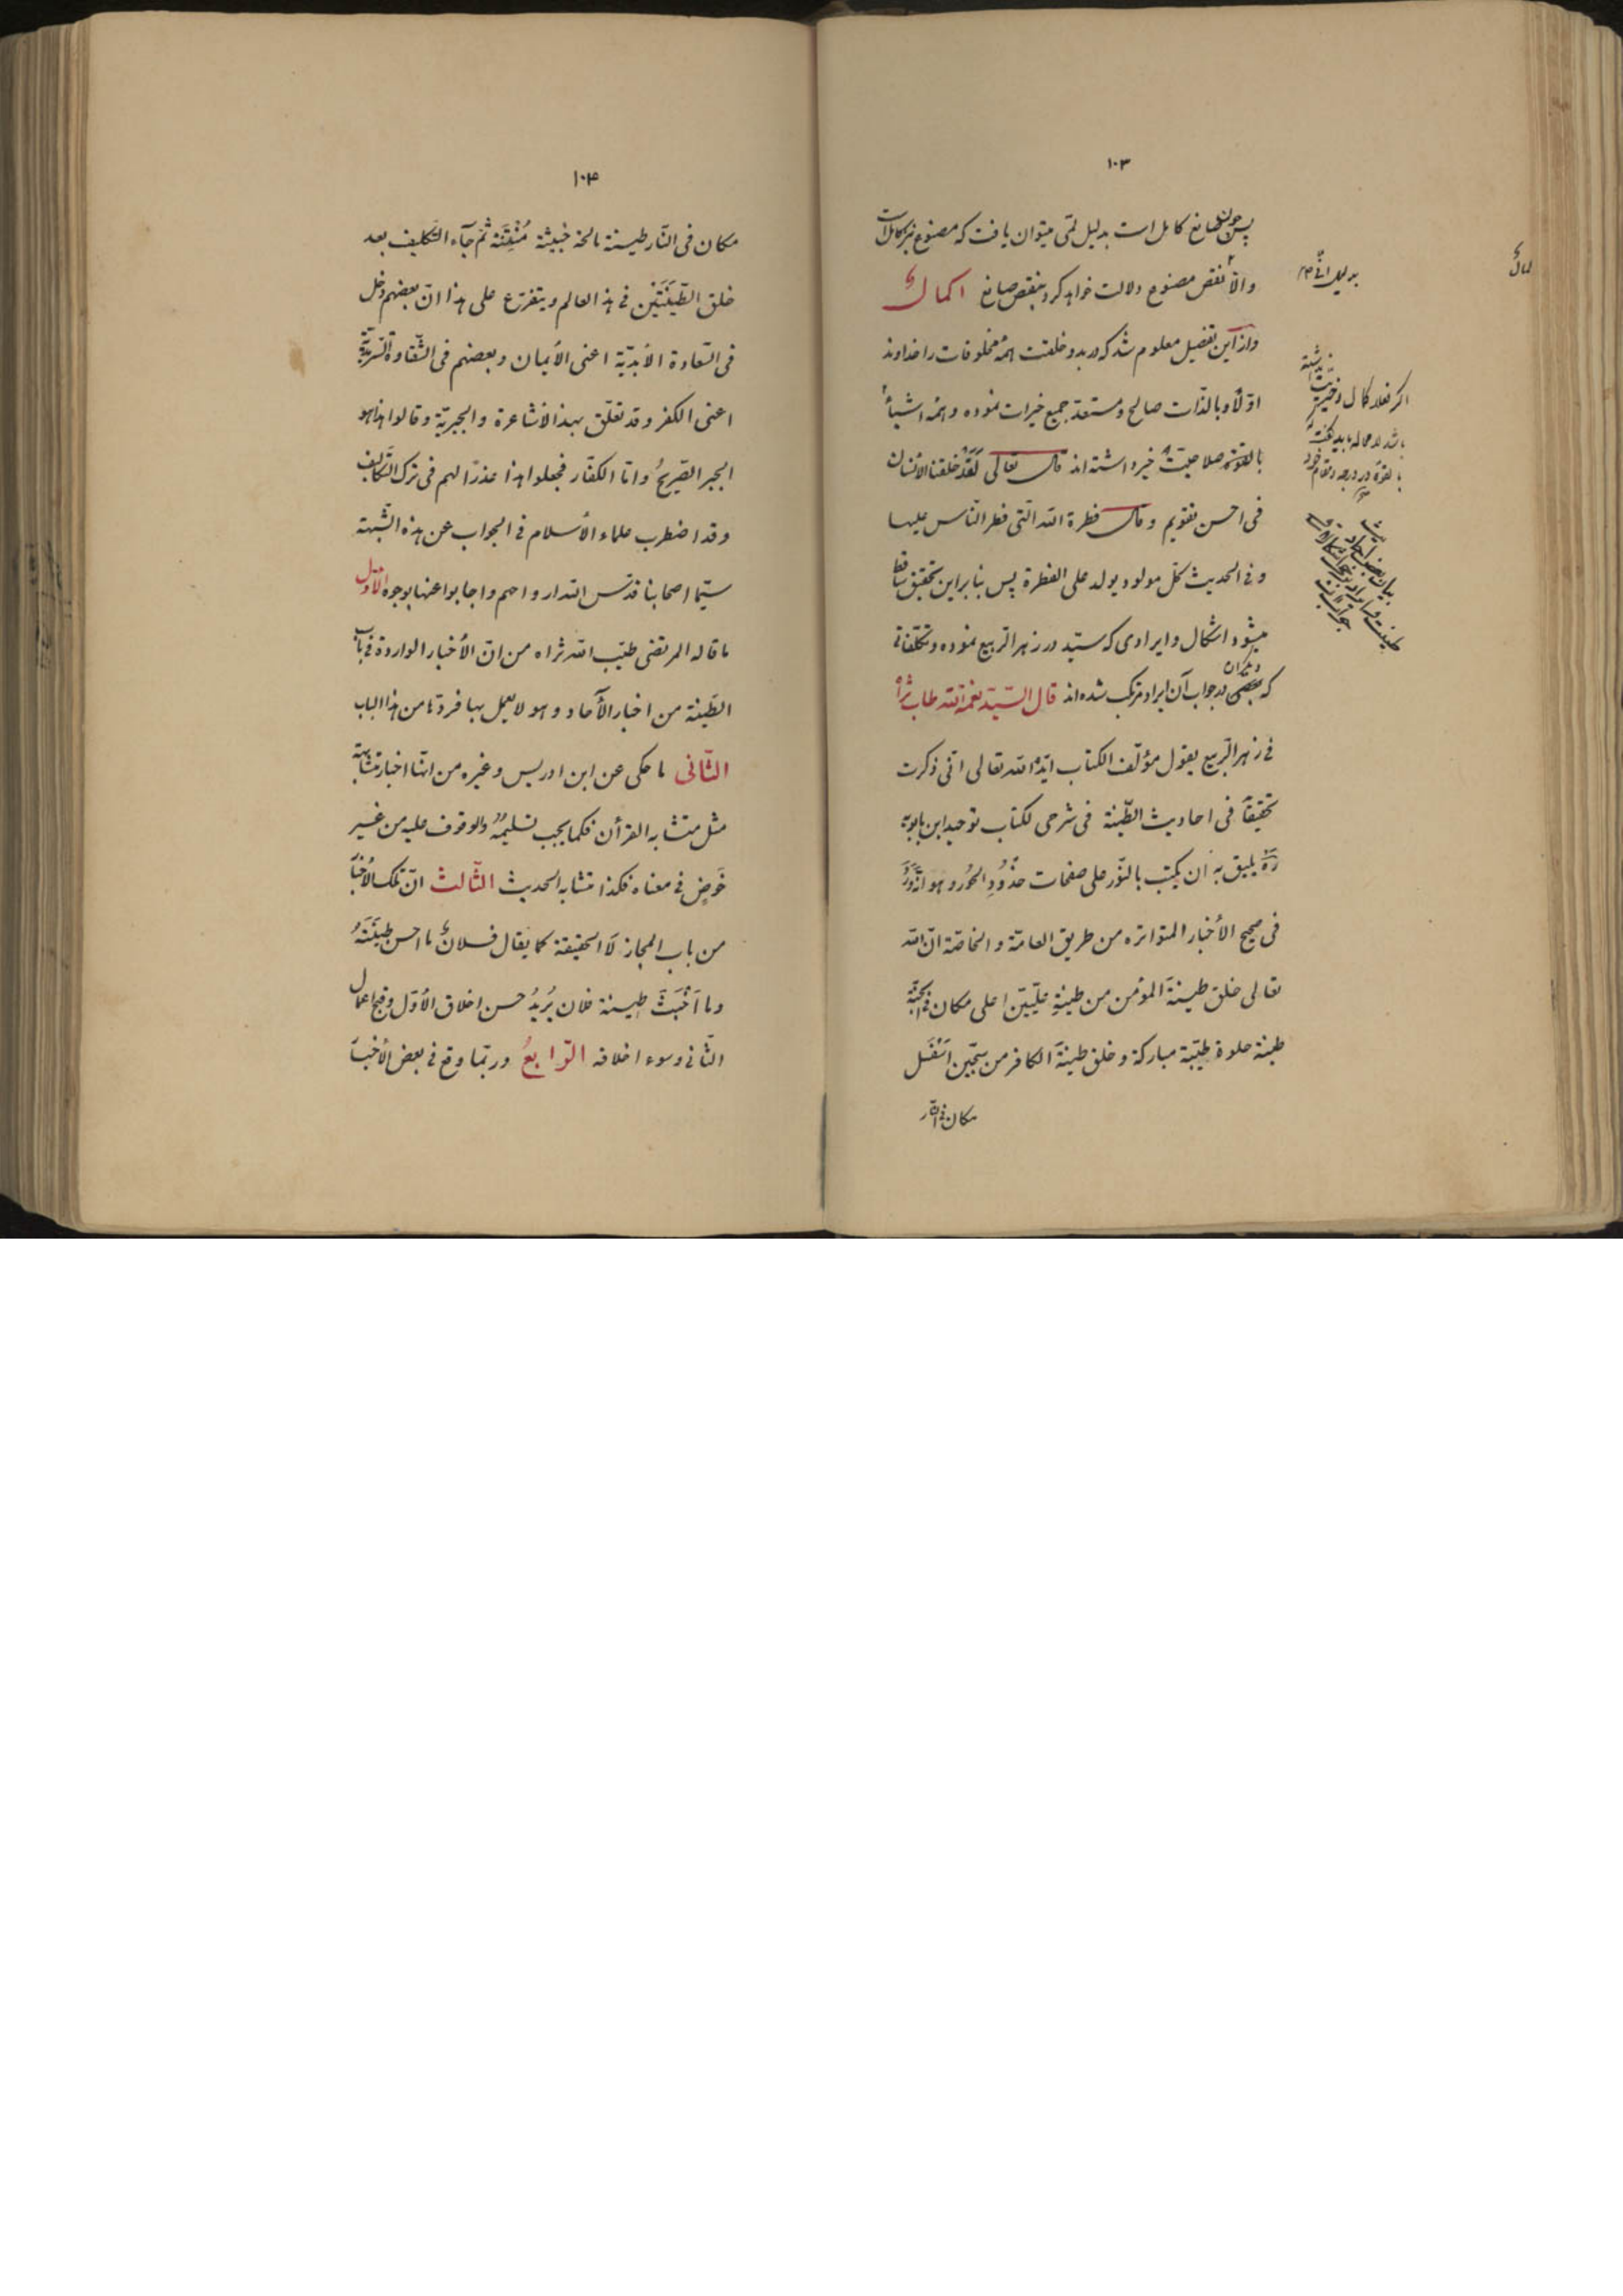 ١٠٣
پس چون صانع كامل است بدليل لمّى ميتوان يافت كه مصنوع نيز كامل است
والّا نقص مصنوع دلالت خواهد كرد بنقص صانع اكمالٌ
واز اين تفصيل معلوم شد كه در بدو خلقت همهٔ مخلوقات را خداوند
اوّلاً وبالذّات صالح ومستعد جميع خيرات نموده وهمه اشيأ
بالقوّه صلاحيّت خير داشته اند قال تعالى لَقَدْ خلقنا الأنسان
فى احسن تقويم وقال فطرة الله الّتى فطر النّاس عليها
وفى الحديث كلّ مولود يولد على الفطرة پس بنابر اين تحقيق ساقط
ميشود اشكال وايرادى كه سيّد در زهر الرّبيع نموده وتكلّفاتى
كه بعضى ديگران در جواب آن ايراد مرتكب شده اند قال السّيّد نعمة الله طاب ثراه
فى زهر الرّبيع يقول مؤلّف الكتاب ايّده الله تعالى انّى ذكرت
تحقيقاً فى احاديث الطّينة فى شرحى لكتاب توحيد ابن بابويه
ره يليق به ان يكتب بالنّور على صفحات خدُودِ الحُور وهو انّه وَرَدَ
فى صحيح الأخبار المتواتره من طريق العامّة والخاصّة انّ الله
تعالى خلق طينة المؤمن من طينةِ علّيّين اعلى مكان فى الجنّة
طينة حلوة طيّبة مباركة وخلق طينةَ الكافر من سجّين اَسْفَل
مكان فى النّار
بدليل انّى
اگر فعلاً كمال وخيريّت نداشته
باشد لا محاله بايد گفت كه
بالقوّه در درجه ومقام خود
١٠٤
مكان فى النّار طينة مالحة خبيثة مُنْتِنَة ثمّ جآء التّكليف بعد
خلق الطّينَتَيْن فى هذا العالم ويتفرّع على هذا انّ بعضهم دخل
فى السّعادة الأبديّة اعنى الأيمان وبعضهم فى الشّقاوة السّرمديّة
اعنى الكفر وقد تعلّق بهذا الأشاعرة والجبريّة وقالوا هذا هو
الجبر الصّريحُ وامّا الكفّار فجعلوا هذا عذراً لهم فى ترك التّكاليف
وقد اضطرب علماء الأسلام فى الجواب عن هذه الشّبهة
سيّما اصحابنا قدّس الله ارواحهم واجابوا عنها بوجوه الأوّل
ما قاله المرتضى طيّب الله ثراه من انّ الأخبار الواردة فى باب
الطّينة من اخبار الآحاد وهو لا يعمل بها فردّها من هذا الباب
الثّانى ما حكى عن ابن ادريس وغيره من انّها اخبار متشابهة
مثل متشابه القرأن فكما يجب تسليمُه والوقوف عليه من غير
خَوضٍ فى معناه فكذا متشابه الحديث الثّالث انّ تلك الأخبار
من باب المجاز لَا الحقيقة كما يقال فلانٌ ما احسن طينَتَهُ
وما اَخْبَثَ طينة فلان يُريدُ حسن اخلاق الأوّل وقبح اعمال
الثّانى وسوء اخلاقه الرّابعُ وربّما وقع فى بعض الأخبار